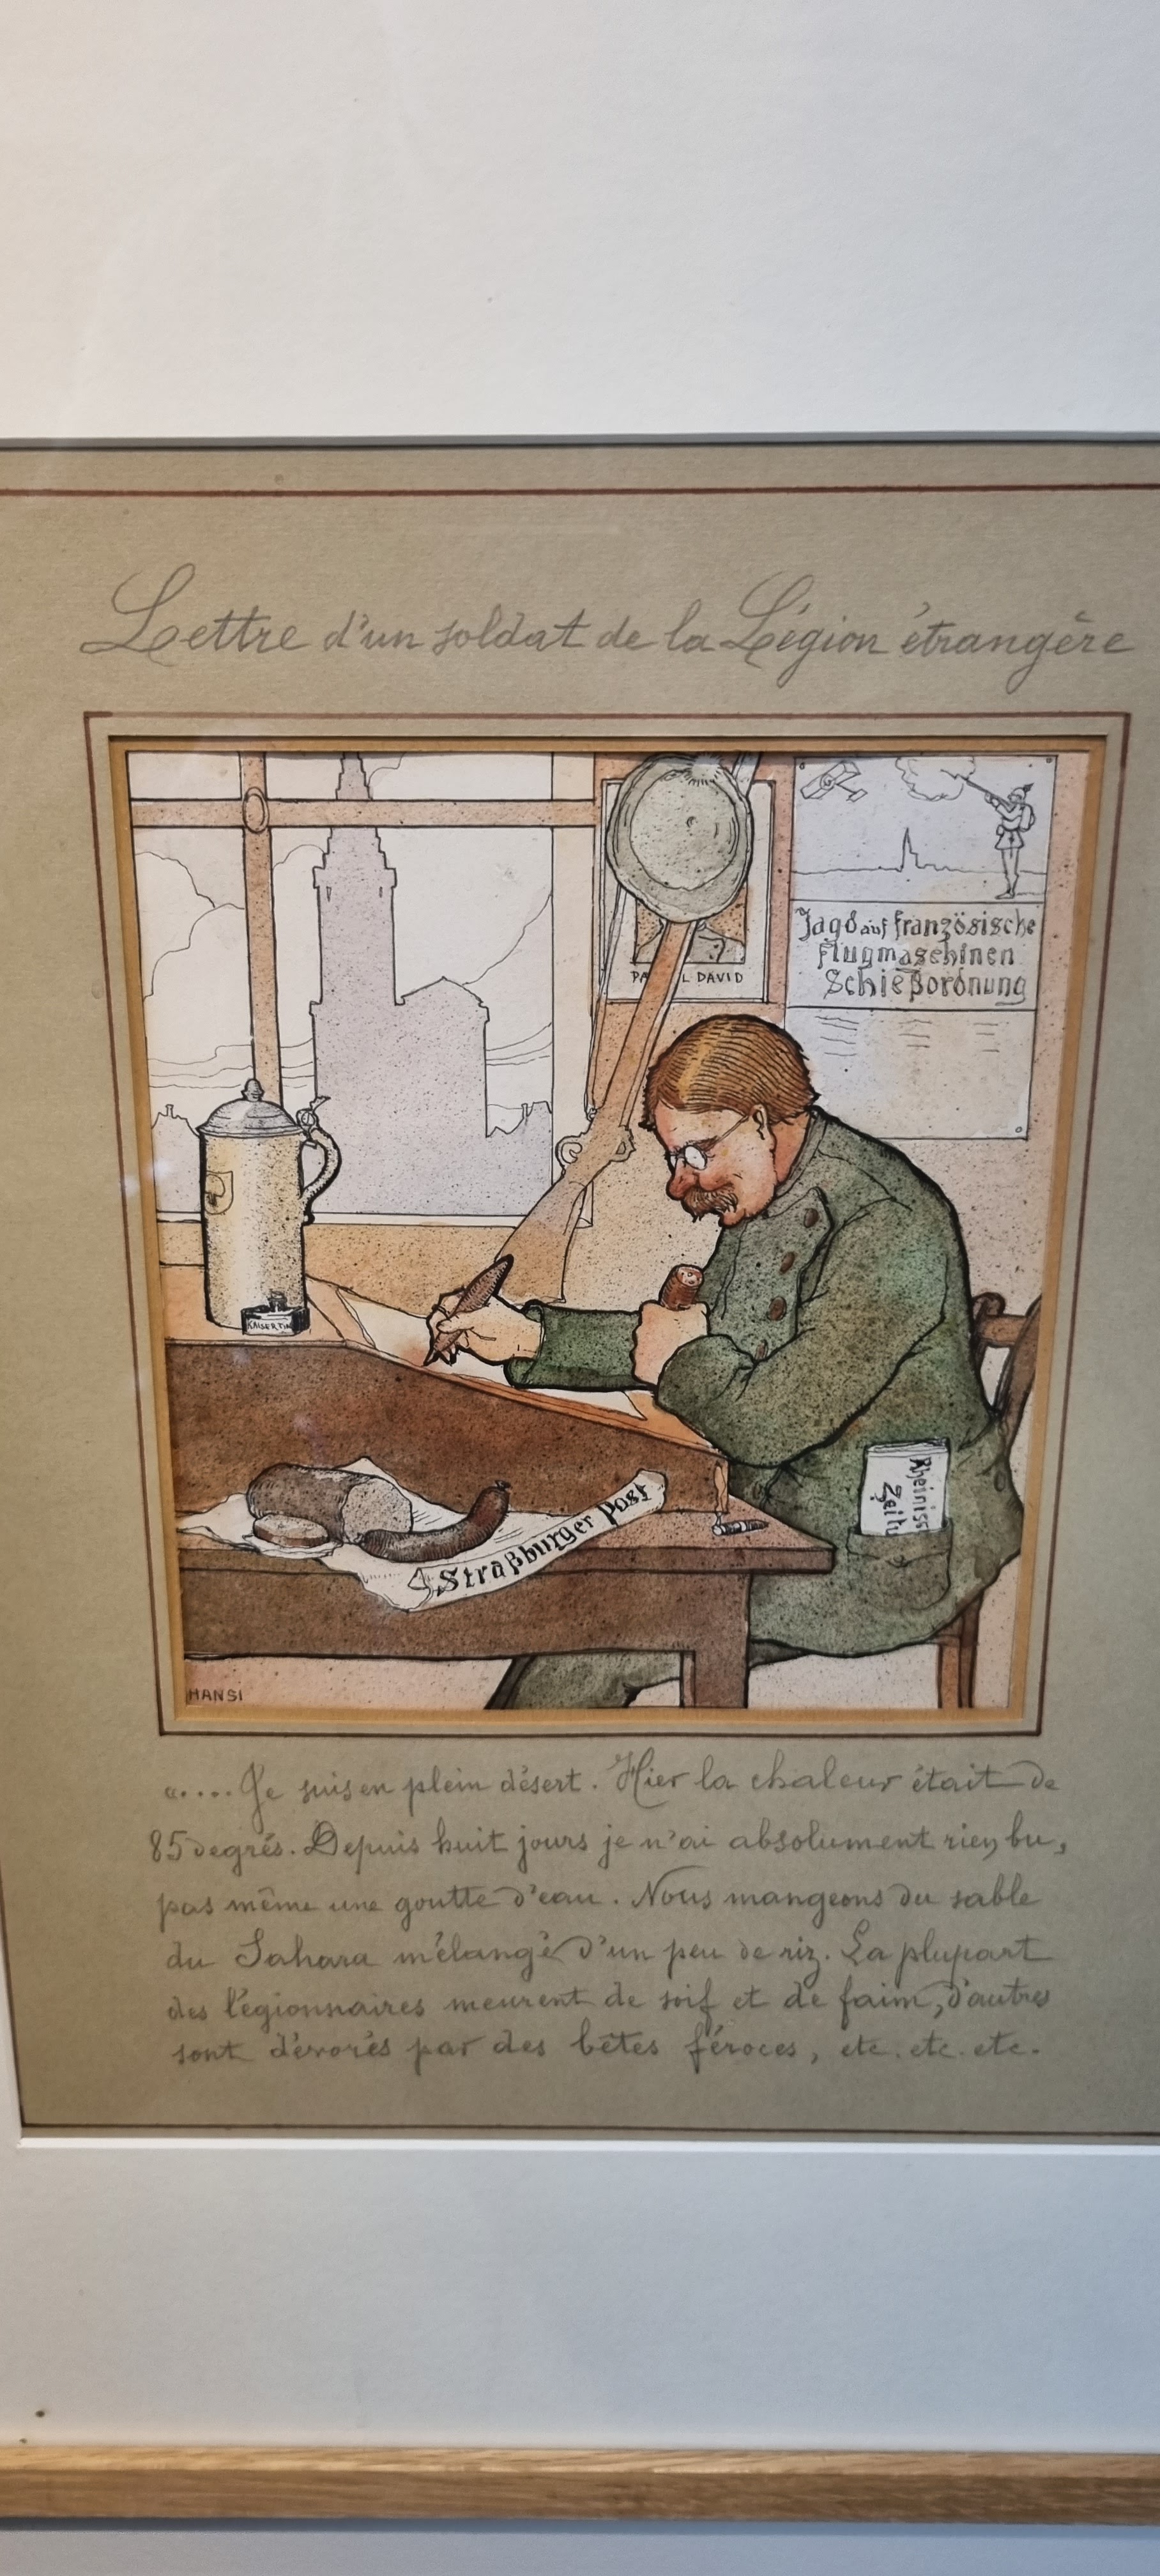 Lettre d'un soldat de la Légion étrangère
PA L DAVID
Jagd auf französische
Flugmaschinen
Schießordnung
KAISERTIN
Rheinis
Zeitu
Straßburger Post
HANSI
«.... Je suis en plein désert. Hier la chaleur était de
85 degrés. Depuis huit jours je n'ai absolument rien bu,
pas même une goutte d'eau. Nous mangeons du sable
du Sahara mélangé d'un peu de riz. La plupart
des légionnaires meurent de soif et de faim, d'autres
sont dévorés par des bêtes féroces, etc. etc. etc.